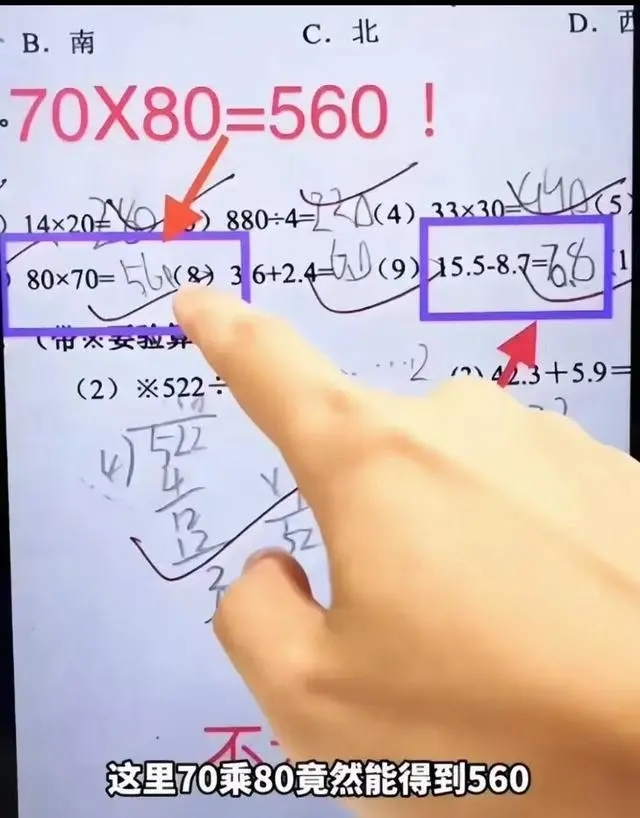 B. 南 C. 北 D. 西
70X80=560！
14×20=280 880÷4=220 (4) 33×30= (5)
80×70=560 (8) 3.6+2.4=6.0 (9) 15.5-8.7=6.8
(带※要验算
(2) ※522÷ ……2 42.3+5.9=
4 522
4
12
12
2
52
不
这里70乘80竟然能得到560